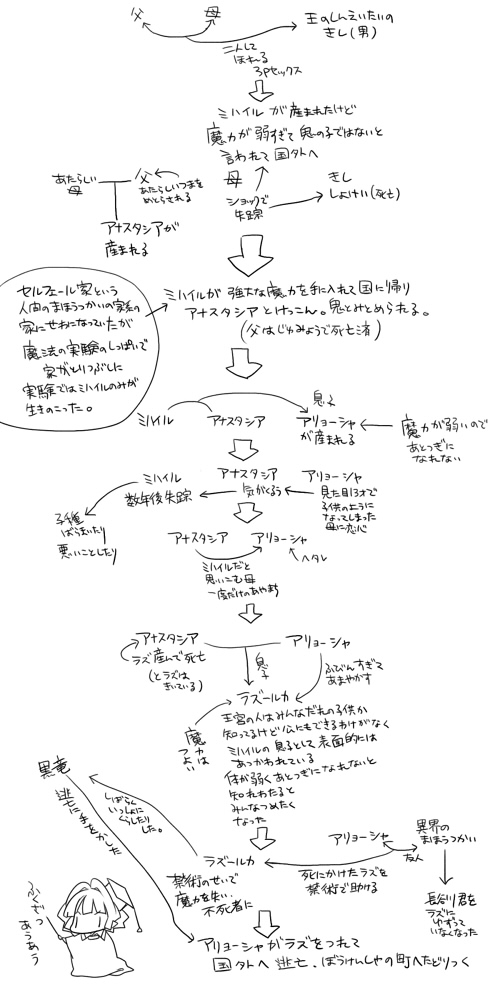 父
母
王のしんえいたいの
きし(男)
二人して
ほれる
3Pセックス
ミハイルが産まれたけど
魔力が弱すぎて鬼の子ではないと
言われて国外へ
あたらしい
母
父
あたらしいつまを
めとらされる
アナスタシアが
産まれる
母
ショックで
失踪
きし
しょけい(死亡)
セルフェール家という
人間のまほうつかいの家系の
家にせわになっていたが
魔法の実験のしっぱいで
家がとりつぶしに
実験ではミハイルのみが
生きのこった。
ミハイルが強大な魔力を手に入れて国に帰り
アナスタシアとけっこん。鬼とみとめられる。
(父はじゅみょうで死亡済)
ミハイル
アナスタシア
息子
アリョーシャ
が産まれる
魔力が弱いので
あとつぎに
なれない
ミハイル
数年後失踪
アナスタシア
気がくるう
アリョーシャ
見た目13才で
子供のように
なってしまった
母に恋心
子種
ばらまいたり
悪いことしたり
アナスタシア
アリョーシャ
ヘタレ
ミハイルだと
思いこむ母
一度だけのあやまち
アナスタシア
ラズ産んで死亡
(とラズは
きいている)
アリョーシャ
息子
ふびんすぎて
あまやかす
ラズールカ
魔力は
つよい
王宮の人はみんなだれの子供か
知ってるけど公にもできるわけがなく
ミハイルの息子として表面的には
あつかわれている
体が弱くあとつぎになれないと
知れわたると
みんなつめたく
なった
黒竜
逃亡に手をかした
しばらく
いっしょに
くらしたり
した。
ラズールカ
禁術のせいで
魔力を失い、
不死者に
アリョーシャ
死にかけたラズを
禁術で助ける
異界の
まほうつかい
友人
長谷川君を
ラズに
ゆずって
いなくなった
アリョーシャがラズをつれて
国外へ逃亡、ぼうけんしゃの町へたどりつく
ふくざつ
あうあう